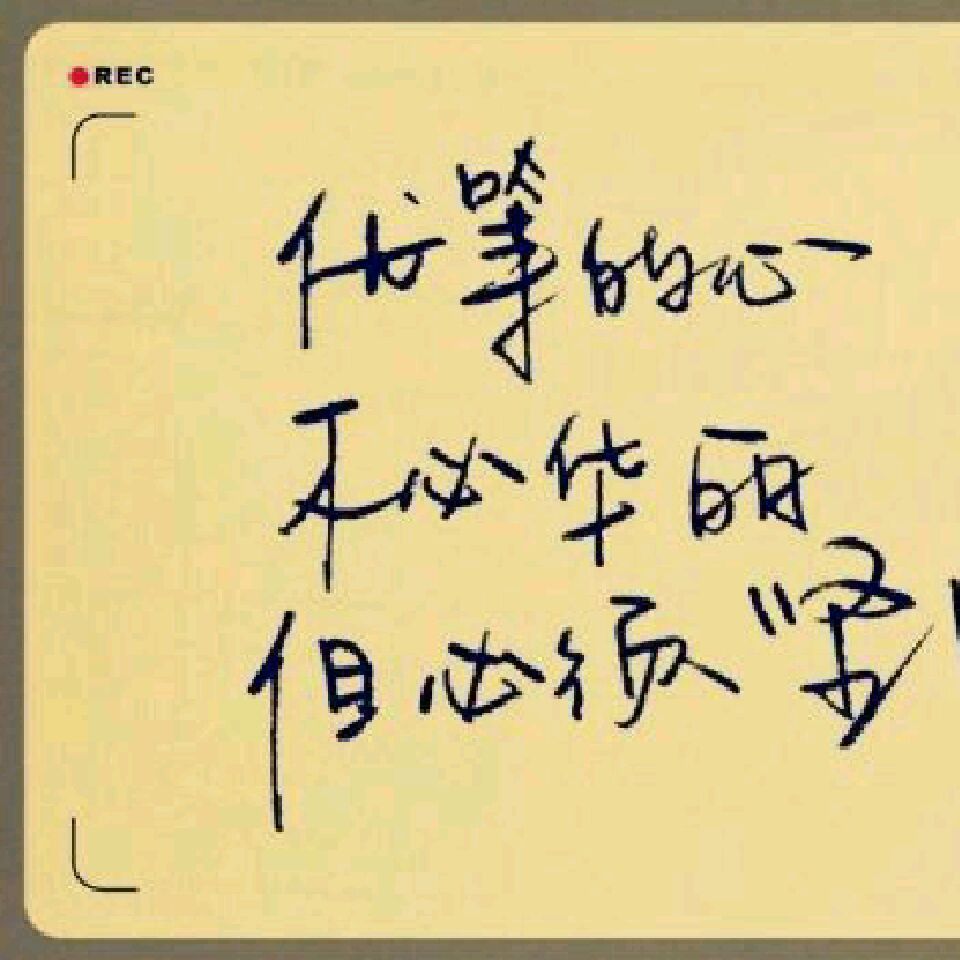 REC
优等的心
不必华丽
但必须“坚